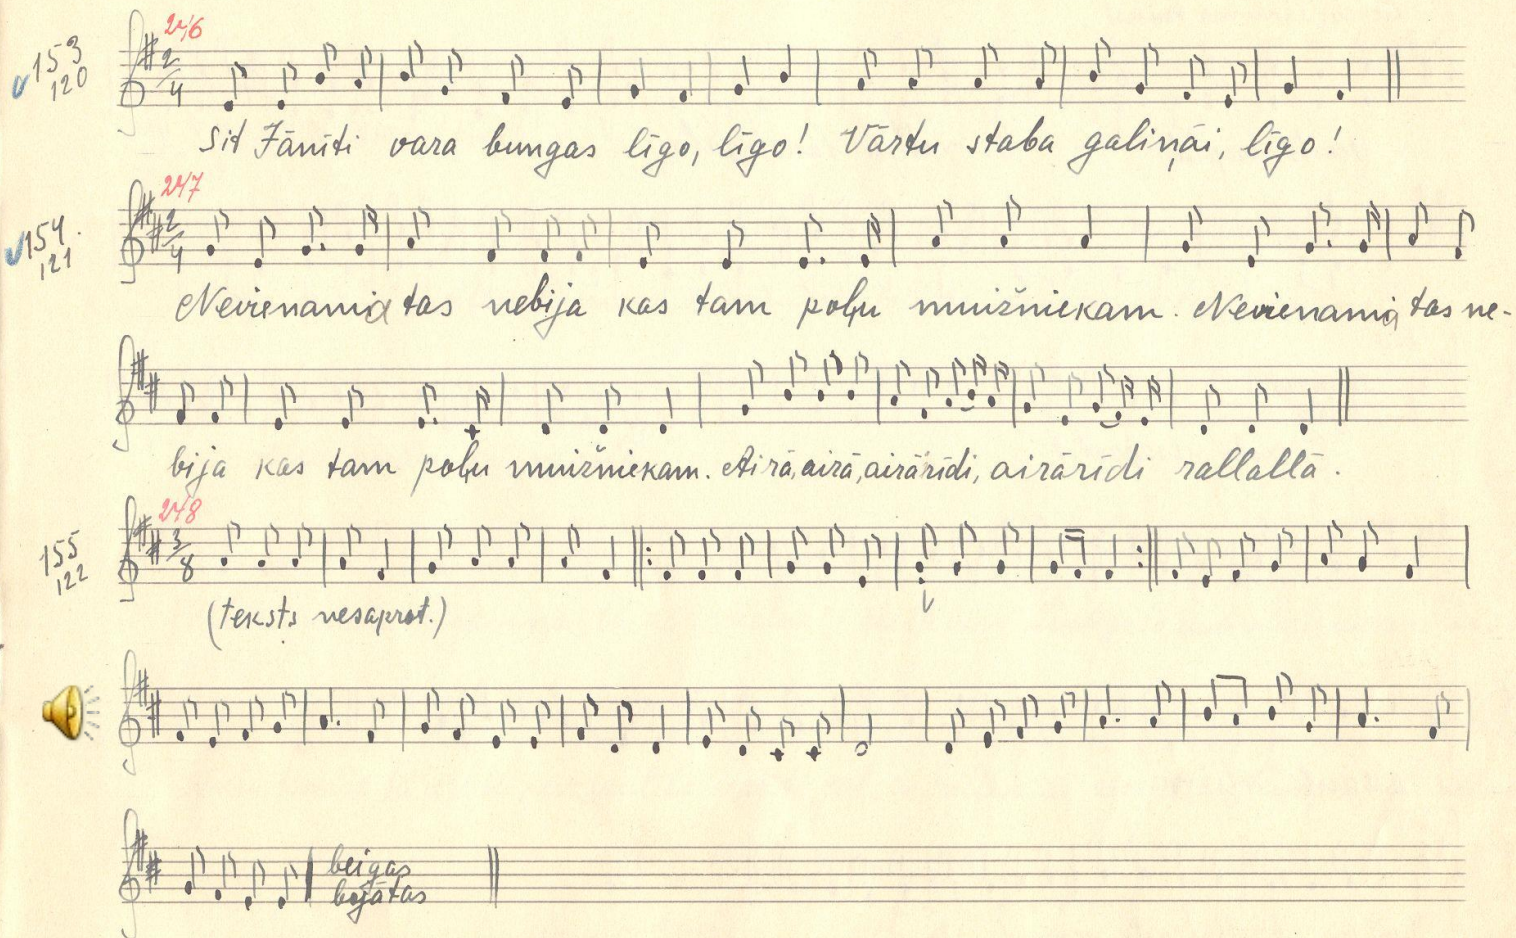 246
153
120
2
4
Sit Jānīti vara bungas līgo, līgo! Vārtu staba galiņāi, līgo!
247
154.
121
2
4
Nevienamia tas nebija kas tam poļu muižniekam. Nevienamia tas ne-
bija kas tam poļu muižniekam. Airā, airā, airārīdi, airārīdi rallallā.
248
155
122
3
8
(teksts nesaprot.)
beigas
bojātas